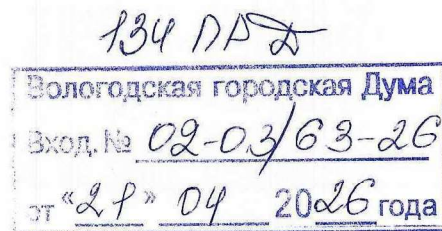 134 ПРД
Вологодская городская Дума
Вход. № 02-03/63-26
от "21" 04 2026 года